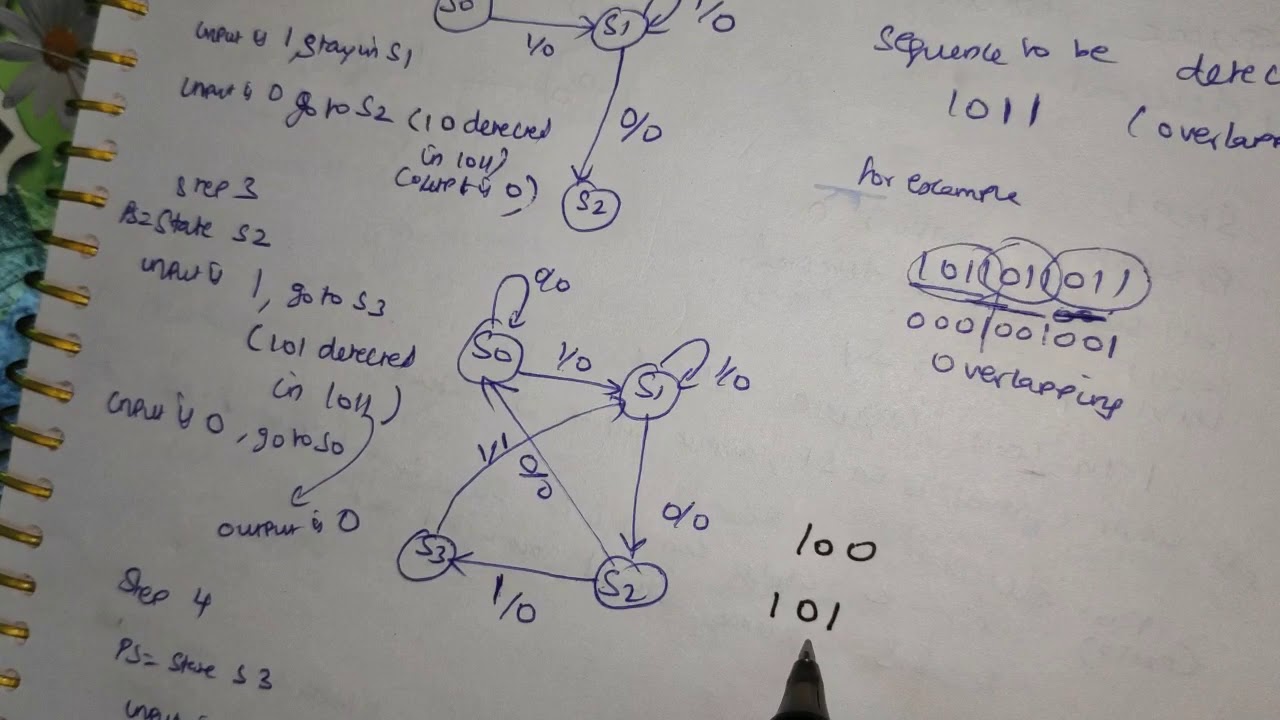 S0
S1
1/0
1/0
input is 1, stay in S1
input is 0 go to S2 (10 detected
in 1011)
(output is 0)
0/0
S2
Step 3
PS=State S2
input is 1, go to S3
(101 detected
in 1011)
input is 0, go to S0
output is 0
Step 4
PS= State S3
0/0
S0
1/0
S1
1/0
1/1
0/0
0/0
S3
1/0
S2
Sequence to be detec
1011 (overlapp
for example
1011011011
0001001001
Overlapping
100
101